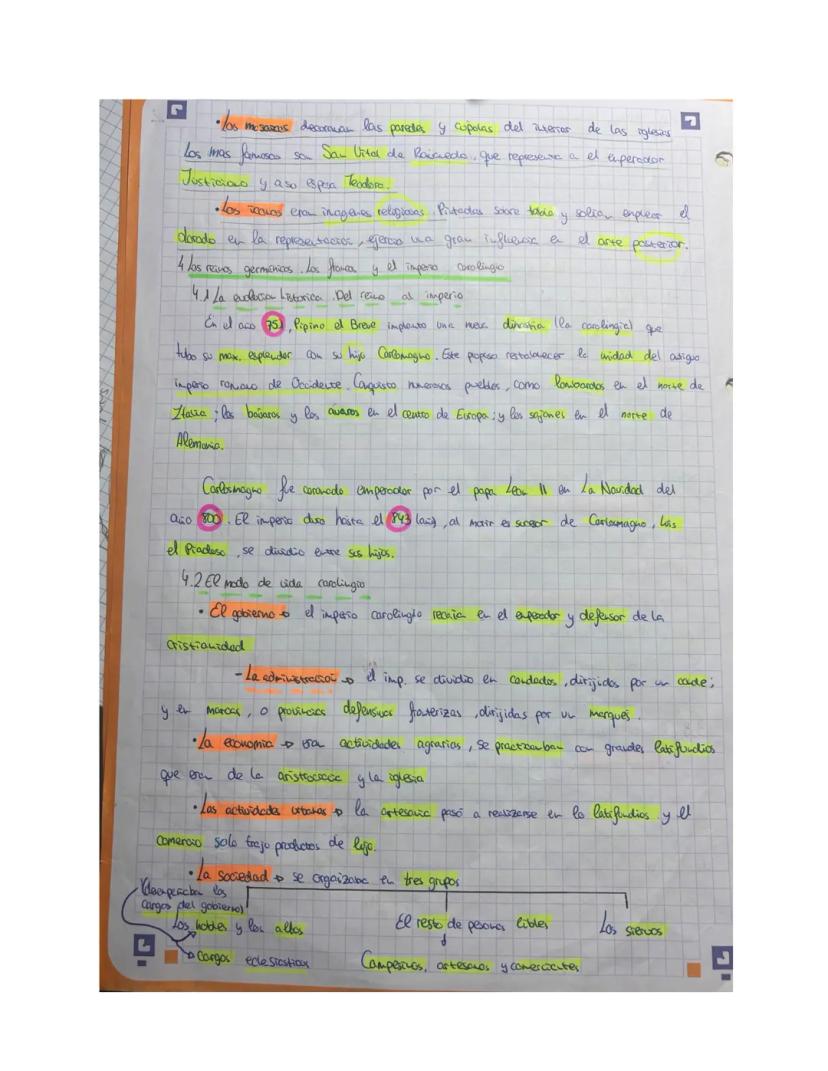 • Los mosaicos decoraban las paredes y cúpulas del interior de las iglesias
Los mas famosos son San Vital de Ravena, que representa a el emperador
Justiniano y a su esposa Teodora.
• Los iconos eran imagenes religiosas. Pintadas sobre tabla y solian emplear el
dorado en la representacion, ejercio una gran influencia en el arte posterior.
4 Los reinos germánicos. Los francos y el imperio carolingio
4.1 La evolucion historica. Del reino al imperio
En el año 751, Pipino el Breve implanto una nueva dinastia (la carolingia) que
tubo su max. esplendor con su hijo Carlomagno. Este propuso restablecer la unidad del antiguo
imperio romano de Occidente. Conquisto numerosos pueblos, como lombardos en el norte de
Italia; los bavaros y los avaros en el centro de Europa; y los sajones en el norte de
Alemania.
Carlosmagno fue coronado emperador por el papa Leon II en La Navidad del
año 800. El imperio duro hasta el 843 (años), al morir es sucesor de Carlosmagno, Luis
el Piadoso, se dividio entre sus hijos.
4.2 El modo de vida carolingio
• El gobierno → el imperio carolingio recaia en el emperador y defensor de la
cristianidad
- La administracion → el imp. se dividio en condados, dirijidos por un conde;
y en marcas, o provincias defensivas fronterizas, dirijidas por un marqués.
• La economia → eran actividades agrarias, se practicanban con grandes latifundios
que eran de la aristocracia y la iglesia
• Las actividades urbanas → la artesania pasó a realizarse en lo latifundios y el
comercio solo trajo productos de lujo.
• La sociedad → se organizaba en tres grupos
(desempeñaban los
cargos del gobierno)
Los nobles y los altos
cargos eclesiasticos
El resto de personas libles
Campesinos, artesanos y comerciantes
Los siervos